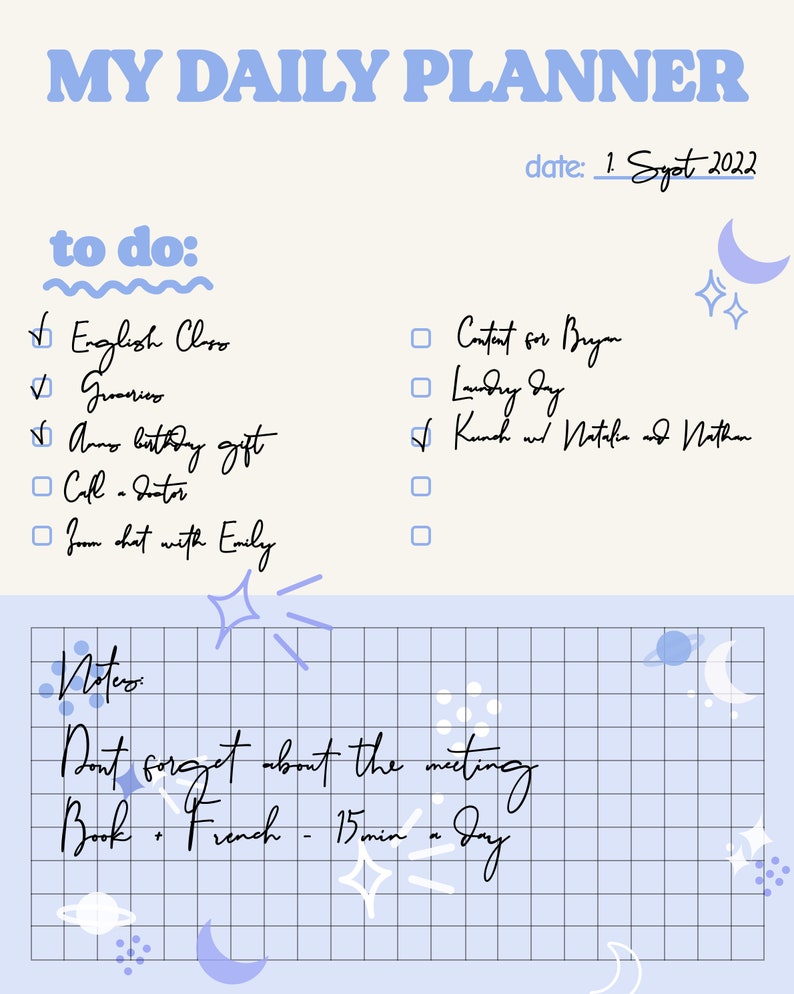 MY DAILY PLANNER
date: 1. Sept 2022
to do:
English Class
Groceries
Anns birthday gift
Call a doctor
Zoom chat with Emily
Content for Bryan
Laundry day
w/ Natalia and Nathan
Notes:
Dont forget about the meeting
Book + French - 15min a day